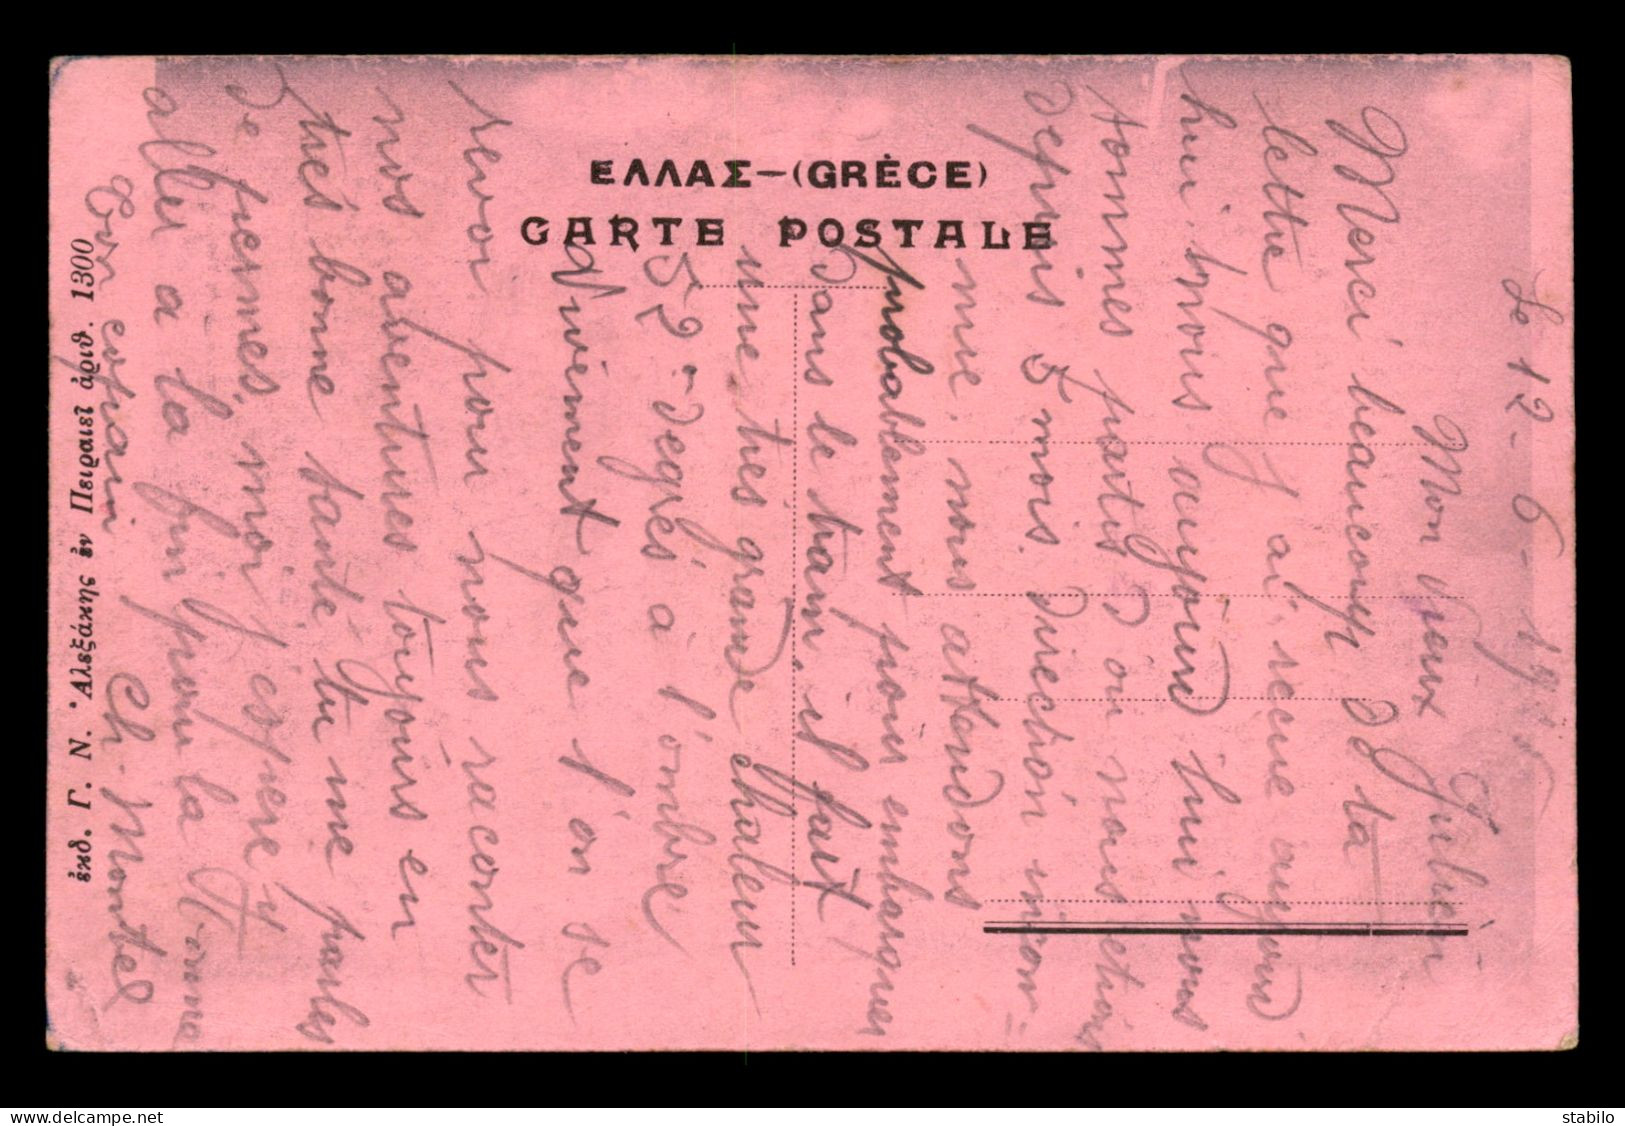 ΕΛΛΑΣ—(GRÈCE)
CARTE POSTALE
ἐκδ. Γ. Ν. Ἀλεξάκης ἐν Πειραιεῖ ἀριθ. 1300
Le 12-6-19
Mon vieux Julien
Merci beaucoup de ta
lettre que j'ai recue aujourd
hui. nous aujourd'hui nous
sommes partis d'où nous etions
depuis 5 mois. Direction incon=
nue. nous attendons
probablement pour embarquer
dans le train. il fait
une tres grande chaleur
52 degrés à l'ombre
Vivement que l'on se
revoi pour nous raconter
nos aventures toujours en
très bonne santé. tu me parles
de permes. moi j'espere y
aller a la fin pour la
Ton copain Ch. Montel
stabilo
www.delcampe.net